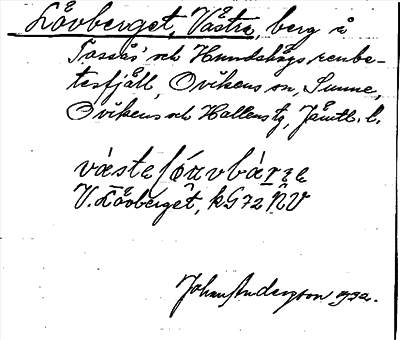 Lövberget, Västra, berg å
Tossås' och Hundshögs renbe-
tesfjäll, Ovikens sn, Sunne,
Ovikens och Hallens tg, Jämtl. l.
V. Lövberget, kG 72 NV
Johan Anderzson 1932.